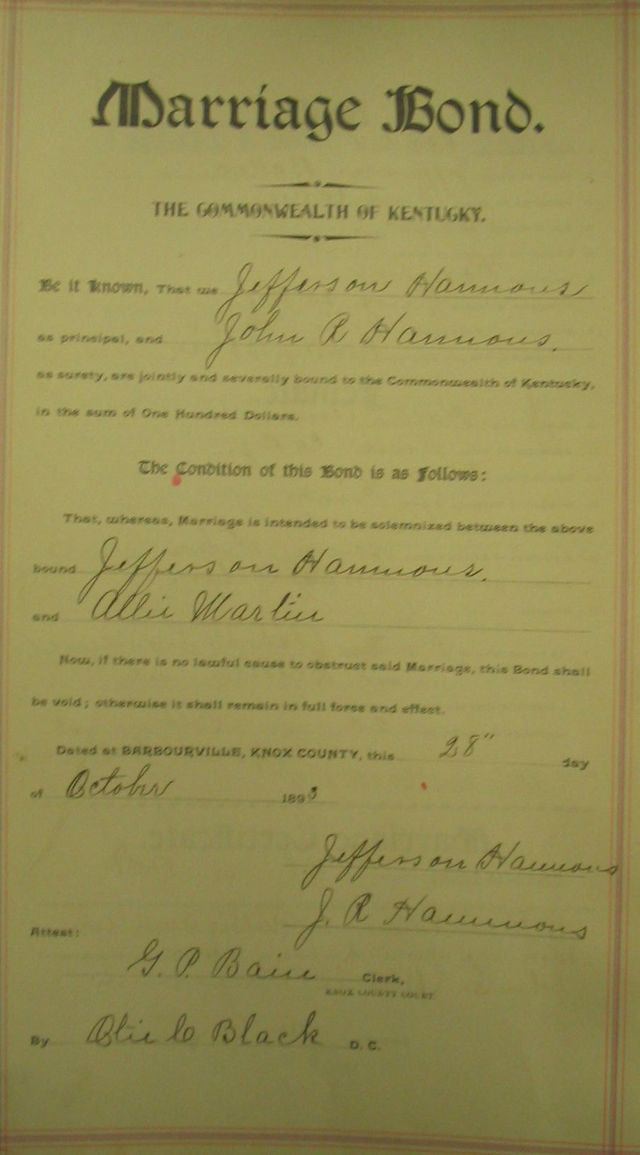 Marriage Bond.
THE COMMONWEALTH OF KENTUCKY.
Be it Known, That we Jefferson Hammons
as principal, and John R Hammons,
as surety, are jointly and severally bound to the Commonwealth of Kentucky,
in the sum of One Hundred Dollars.
The Condition of this Bond is as Follows:
That, whereas, Marriage is intended to be solemnized between the above
bound Jefferson Hammons,
and Allie Martin
Now, if there is no lawful cause to obstruct said Marriage, this Bond shall
be void; otherwise it shall remain in full force and effect.
Dated at BARBOURVILLE, KNOX COUNTY, this 28" day
of October 189
Jefferson Hammons
J. R Hammons
Attest:
G. P. Bain Clerk,
KNOX COUNTY COURT
By Olie C Black D. C.